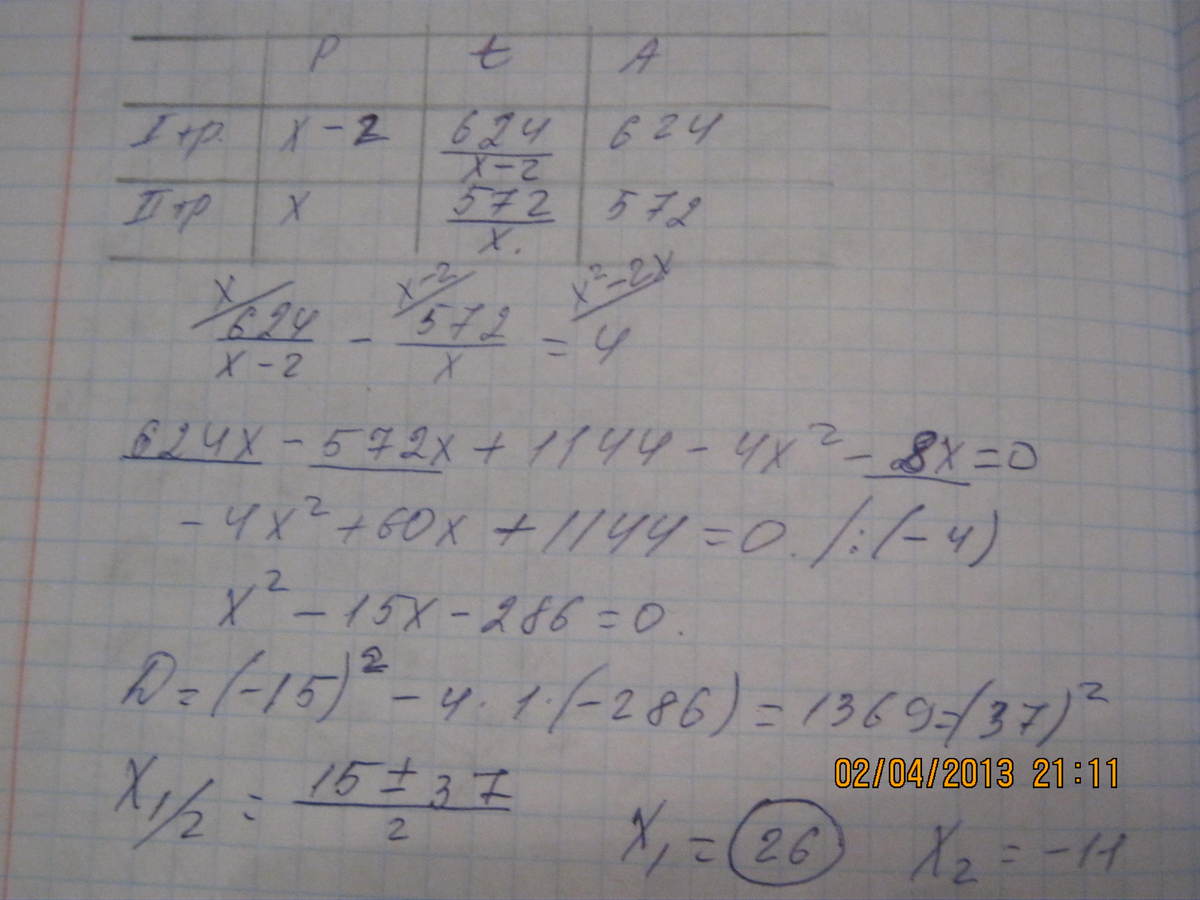 P t A
I тр. x - 2 624/(x - 2) 624
II тр x 572/x. 572
x/ x-2/ x²-2x/
624/(x - 2) - 572/x = 4
624x - 572x + 1144 - 4x² - 8x = 0
-4x² + 60x + 1144 = 0. /:(-4)
x² - 15x - 286 = 0.
D = (-15)² - 4·1·(-286) = 1369 = (37)²
X1/2 = (15 ± 37)/2
X₁ = 26 X₂ = -11
02/04/2013 21:11